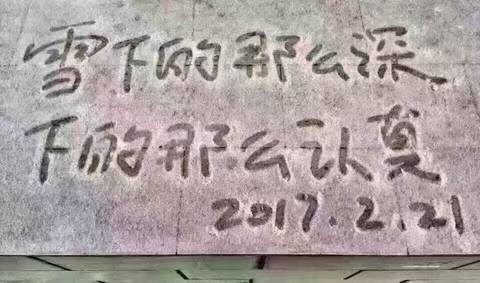 雪下的那么深
下的那么认莫
2017.2.21